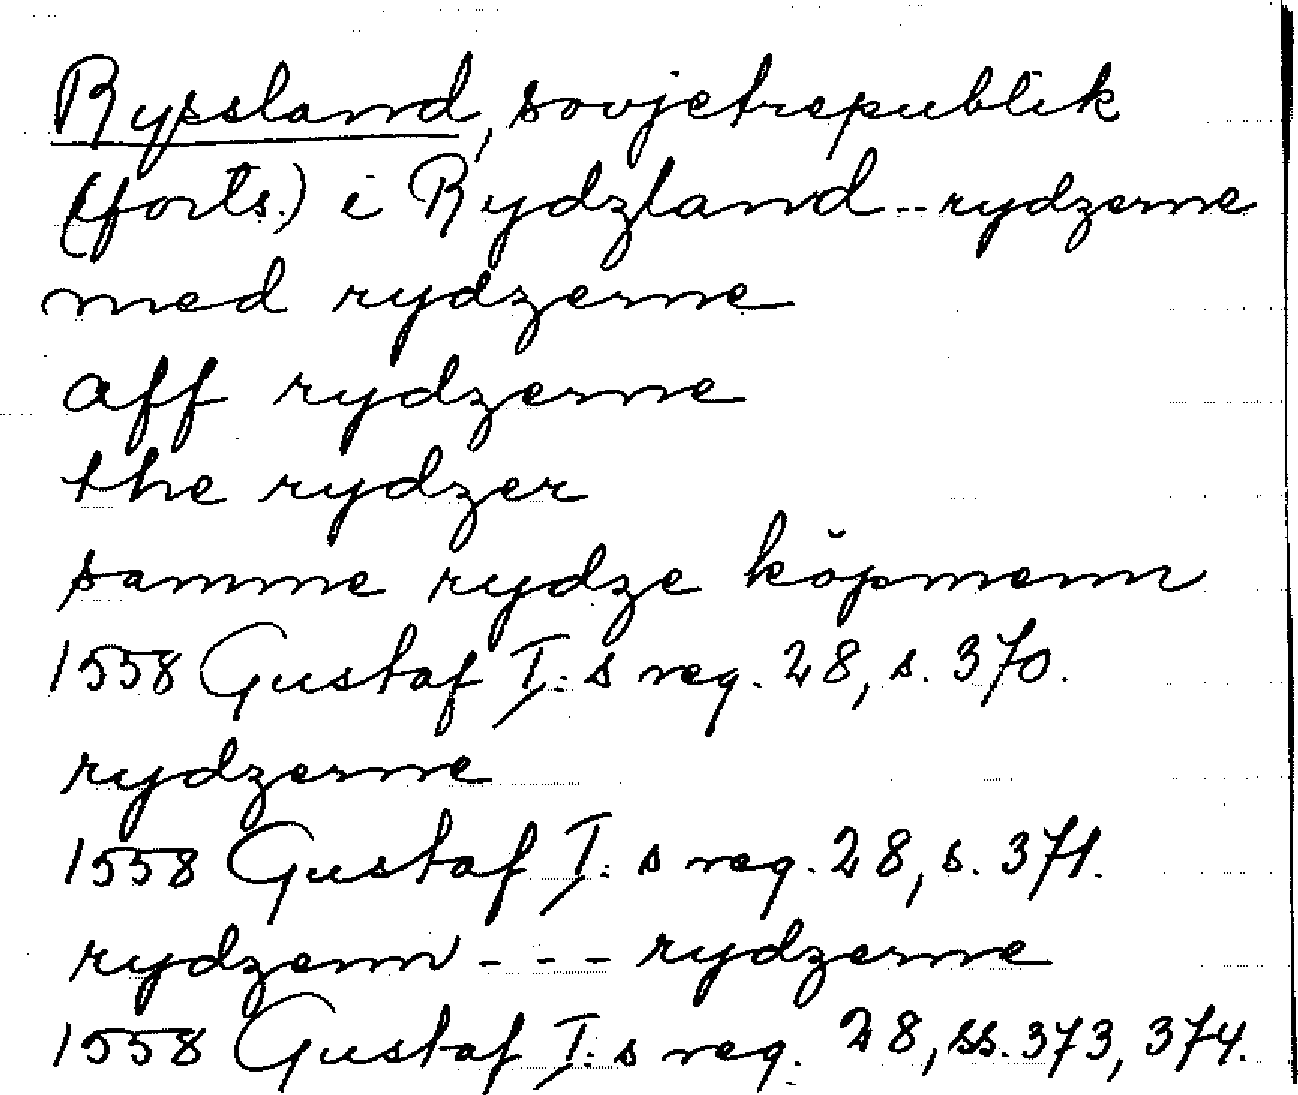 Ryssland, sovjetrepublik
(forts.) i Rydzland -- rydzerne
med rydzerne
aff rydzerne
the rydzer
samme rydze köpmenn
1558 Gustaf I:s reg. 28, s. 370.
rydzerne
1558 Gustaf I:s reg. 28, s. 371.
rydzenn - - - rydzerne
1558 Gustaf I:s reg. 28, ss. 373, 374.